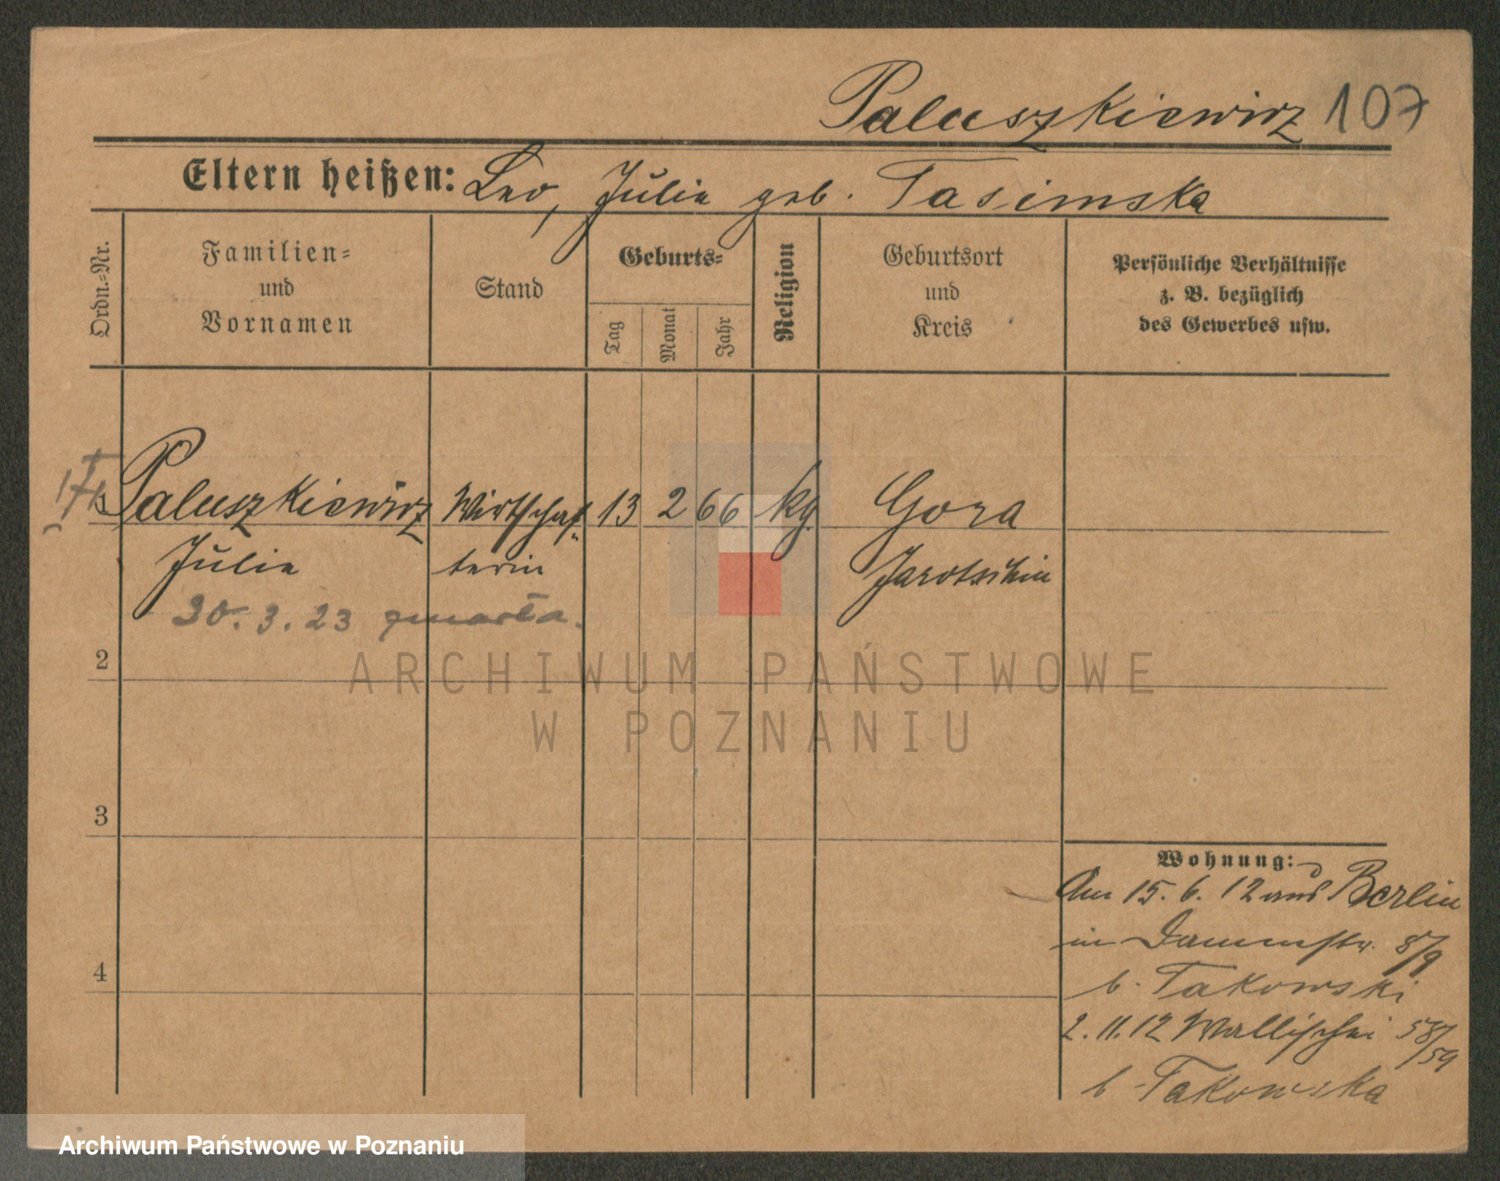 Paluszkiewicz 107
Eltern heißen: Leo, Julie geb. Tasimska
Ordn.-Nr.
Familien-
und
Vornamen
Stand
Geburts-
Tag
Monat
Jahr
Religion
Geburtsort
und
Kreis
Persönliche Verhältnisse
z. B. bezüglich
des Gewerbes usw.
Paluszkiewicz Wirtschaf- 13 2 66 kg. Gora
Julie terin Jarotschin
30. 3. 23 zmarła.
2
ARCHIWUM PAŃSTWOWE
W POZNANIU
3
4
Wohnung:
Am 15. 6. 12 aus Berlin
in Dammstr. 8/9
b. Takowski
2. 11. 12 Wallischei 58/59
b. Takowska
Archiwum Państwowe w Poznaniu